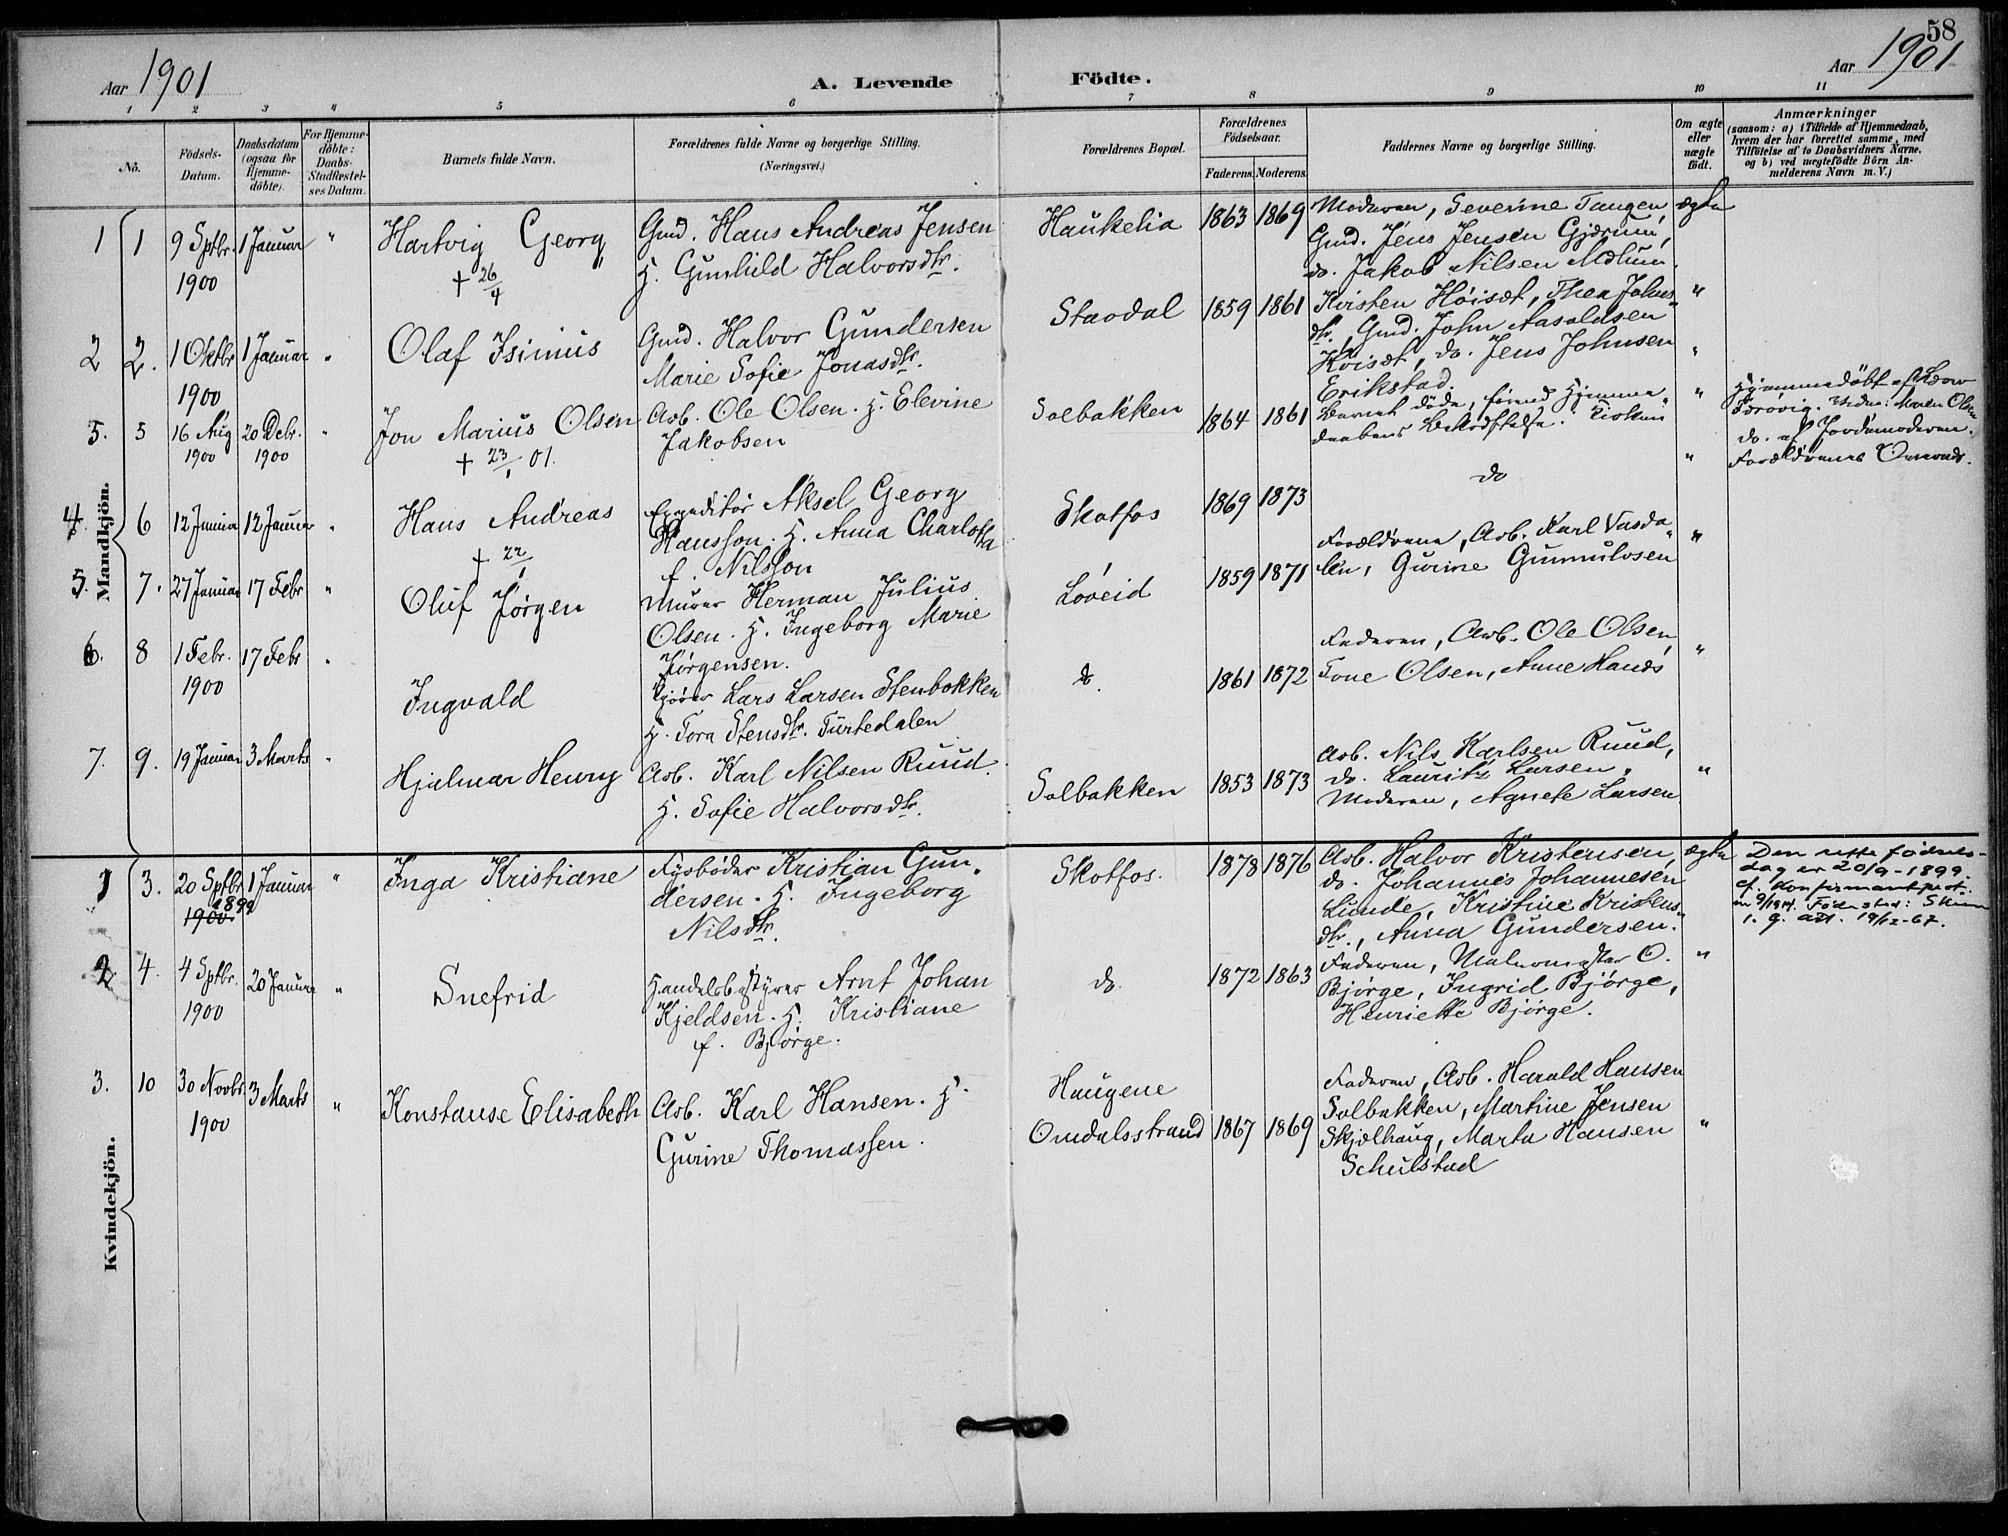 58
Aar 1901
A. Levende Födte.
Aar 1901
1 2 3 4 5 6 7 8 9 10 11
No.
Födsels-Datum.
Daabsdatum (ogsaa for Hjemme-döbte).
For Hjemme-döbte: Daabs-Stadfæstel-ses Datum.
Barnets fulde Navn.
Forældrenes fulde Navne og borgerlige Stilling.
(Næringsvei.)
Forældrenes Bopæl.
Forældrenes Födselsaar.
Faderens. Moderens.
Faddernes Navne og borgerlige Stilling.
Om ægte eller uægte födt.
Anmærkninger
(saasom: a) i Tilfælde af Hjemmedaab,
hvem der har forrettet samme, med
Tilföielse af to Daabsvidners Navne,
og b) ved uægtefödte Börn An-
melderens Navn m. V.)
Mandkjön.
1 1 9 Sptbr. 1900 1 Januar " Hartvig Georg
+ 26/4
Gmd. Hans Andreas Jensen
H. Gunhild Halvorsdtr.
Haukelia 1863 1869
Moderen, Severine Tangen,
Gmd. Jens Jensen Gjærum,
do. Jakob Nilsen
ægte
2 2. 1 Oktbr 1900 1 Januar " Olaf Isimus
Gmd. Halvor Gundersen
Marie Sofie Jonasdtr.
Stavdal 1859 1861
Kristen Høisæt, Thea Johns-
dtr, Gmd. John Aasoldsen
Høisæt, do. Jens Johnsen
Erikstad.
"
3. 5 16 Aug 1900 20 Debr. 1900 " Jon Marius Olsen
+ 23/1 01.
Arb. Ole Olsen. H. Elevine
Jakobsen
Solbakken 1864 1861
Barnet döde, förend Hjemme-
daabens Bekræftelse i Kirken
"
Hjemmedöbt af
Vidne: Maren Olsen
4. 6 12 Januar 12 Januar " Hans Andreas
+ 22/1
Expeditör Aksel Georg
Hansson. H. Anna Charlotta
f. Nilsson
Skotfos 1869 1873
do
"
do. af Jordemoderen.
Forældrenes
5. 7. 27 Januar 17 Febr " Oluf Jörgen
Murer Herman Julius
Olsen. H. Ingeborg Marie
Jörgensen.
Löveid 1859 1871
Forældrene, Arb. Karl Vasda-
len, Gurine Gunnulvsen
"
6. 8 1 Febr. 1900 17 Febr " Ingvald
Kjörer Lars Larsen Stenbakken
H. Tora Stensdtr. Turtedalen
do. 1861 1872
Faderen, Arb. Ole Olsen,
Tone Olsen, Anne Hansd
"
7. 9. 19 Januar 3 Marts " Hjalmar Henry
Arb. Karl Nilsen Ruud.
H. Sofie Halvorsdtr.
Solbakken 1853 1873
Arb. Nils Karlsen Ruud,
do. Lauritz Larsen,
Moderen, Agnete Larsen
"
Kvindekjön.
1 3. 20 Sptbr 1900 1899 1 Januar " Inga Kristiane
Fyrböder Kristian Gun-
dersen. H. Ingeborg
Nilsdtr.
Skotfos. 1878 1876
Arb. Halvor Kristensen,
do. Johannes Johannesen
Lunde, Kristine Kristens-
dtr., Anna Gundersen.
ægte
Den rette födsels-
dag er 20/9-1899.
cf. Konfirmantprot.
Födested: Skien
19/12-67.
2 4. 4 Sptbr. 1900 20 Januar " Snefrid
Handelsbestyrer Arnt Johan
Kjeldsen. H. Kristiane
f. Bjørge.
do. 1872 1863
Faderen, Malermester O.
Bjørge, Ingrid Bjørge,
Henriette Bjørge.
"
3. 10 30 Novbr. 1900 3 Marts " Konstanse Elisabeth
Arb. Karl Hansen. H.
Gurine Thomassen.
Haugene
Omdalsstrand 1867 1869
Faderen, Arb. Harald Hansen
Solbakken, Martine Jensen
Skjælhaug, Marta Hansen
Schulstad
"